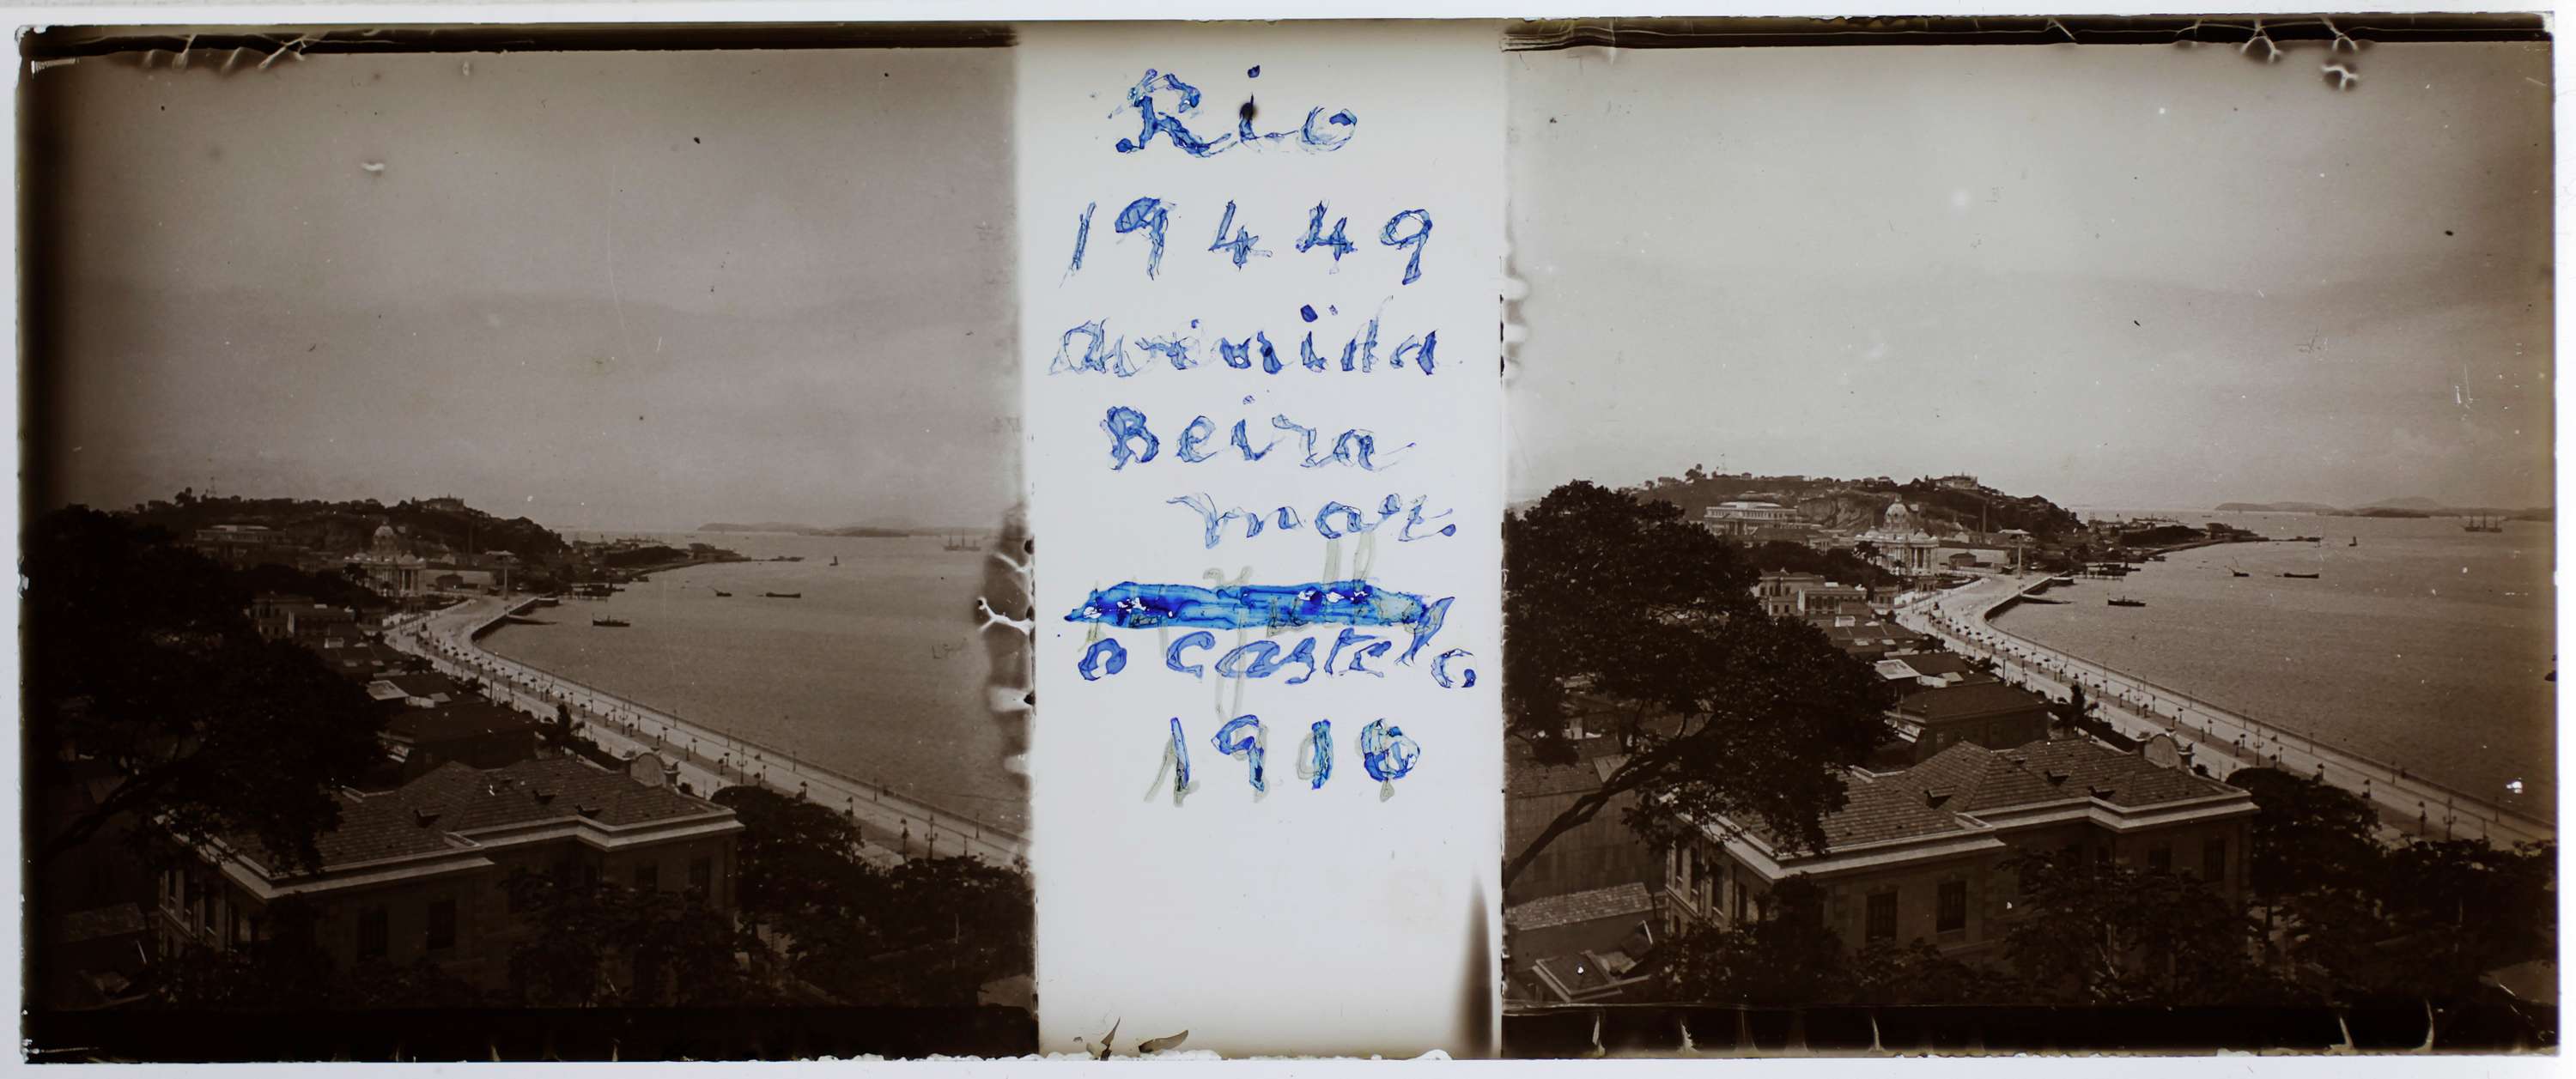 Rio
19449
Avenida
Beira
mar
o Castelo
1910